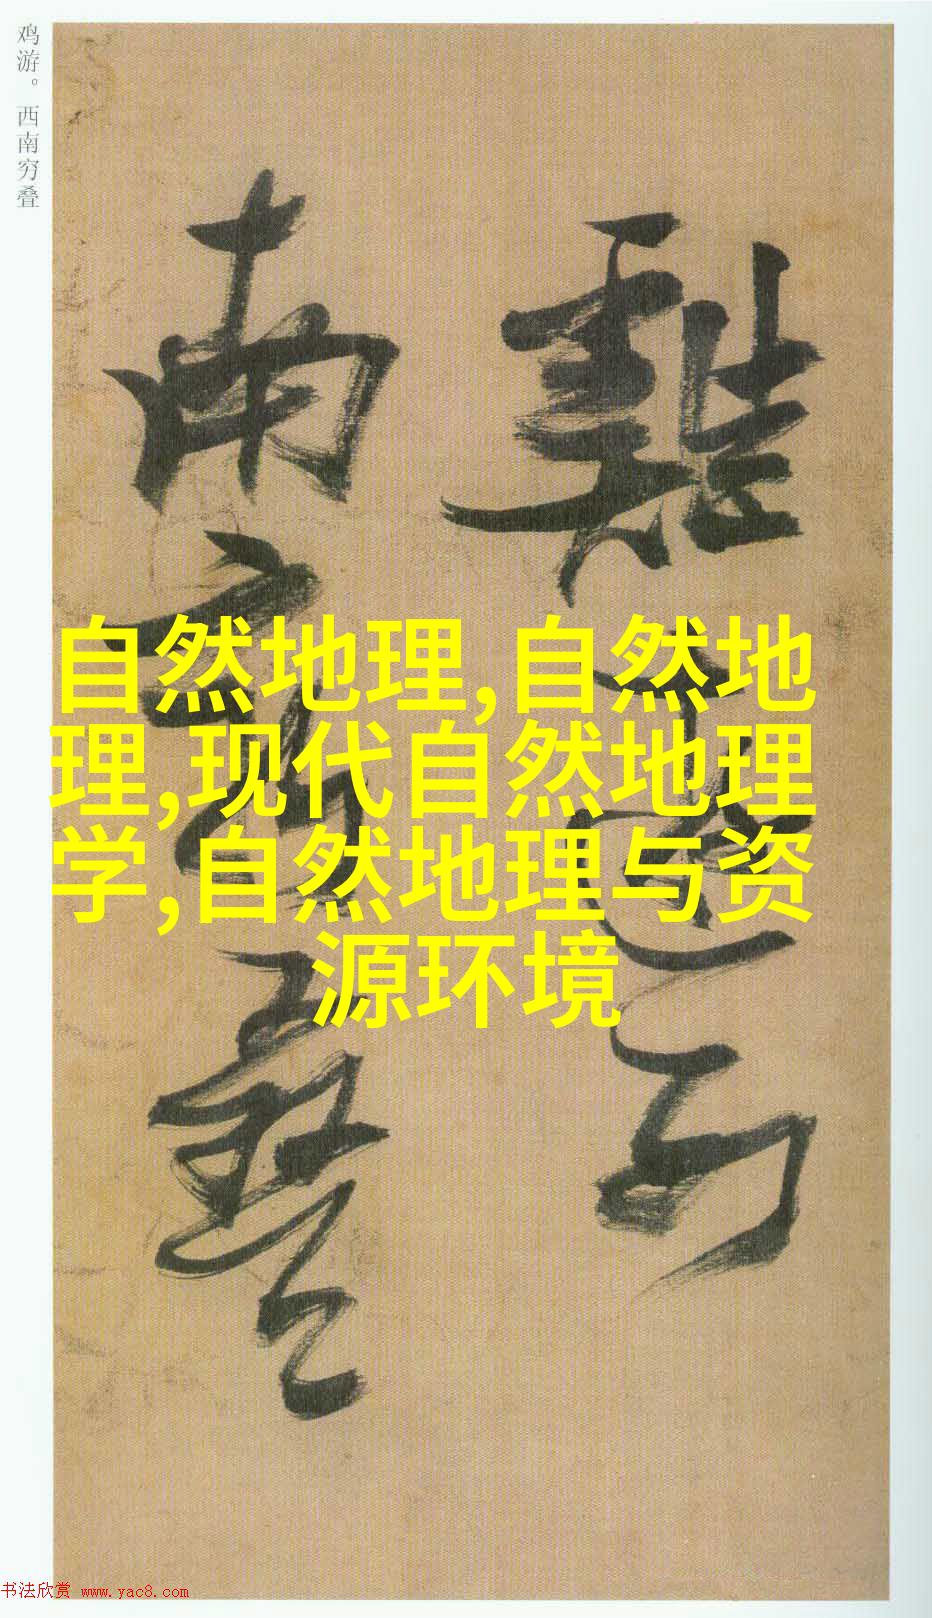 鸡游。西南穷叠
雞遊西
南窮疊
自然地理,自然地
理,现代自然地理
学,自然地理与资
源环境
书法欣赏 www.yac8.com